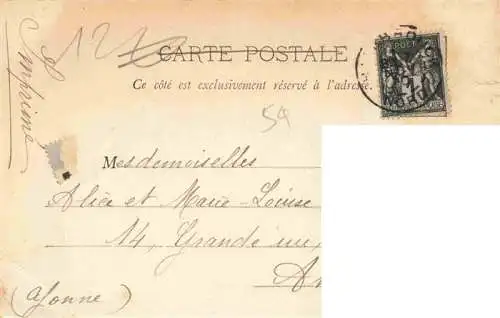 Imprimé
CARTE POSTALE
Ce côté est exclusivement réservé à l'adresse.
59
Mesdemoiselles
Alice et Marie-Louise
14, Grande rue,
(Yonne)